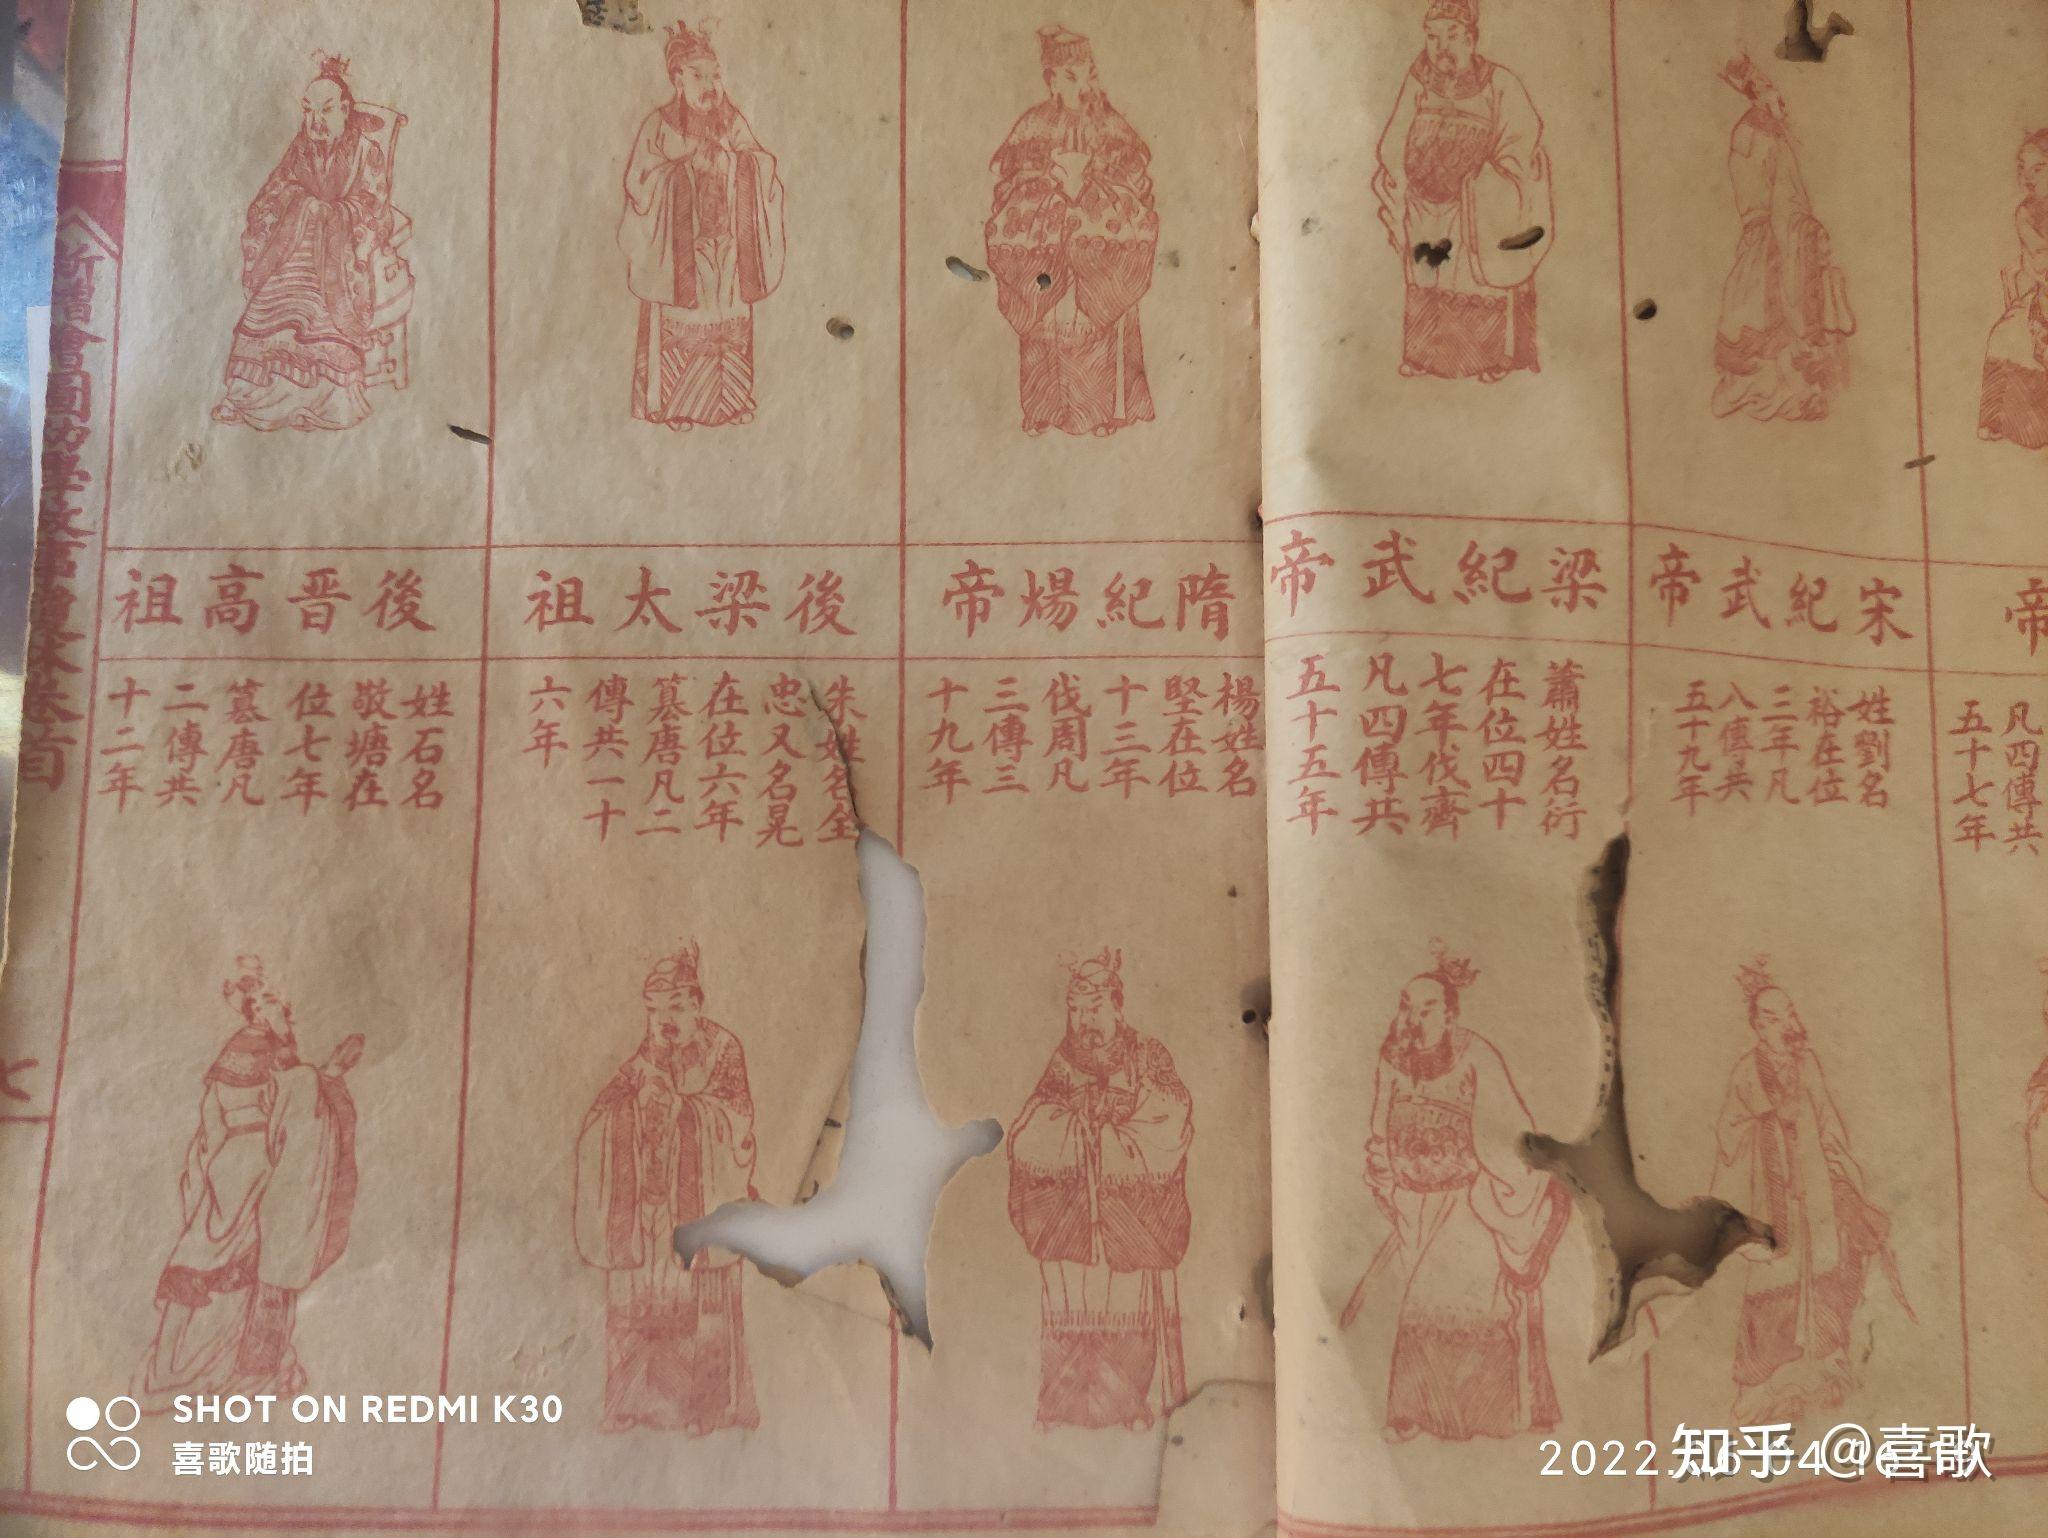 帝
凡四傳共
五十七年
宋紀武帝
姓劉名
裕在位
三年凡
八傳共
五十九年
梁紀武帝
蕭姓名衍
在位四十
七年伐齊
凡四傳共
五十五年
隋紀煬帝
楊姓名
堅在位
十三年
伐周凡
三傳三
十九年
後梁太祖
朱姓名全
忠又名晃
在位六年
篡唐凡二
傳共一十
六年
後晋高祖
姓石名
敬塘在
位七年
篡唐凡
二傳共
十二年
新增繪圖幼學故事瓊林卷首
七
SHOT ON REDMI K30
喜歌随拍
2022.
知乎 @喜歌